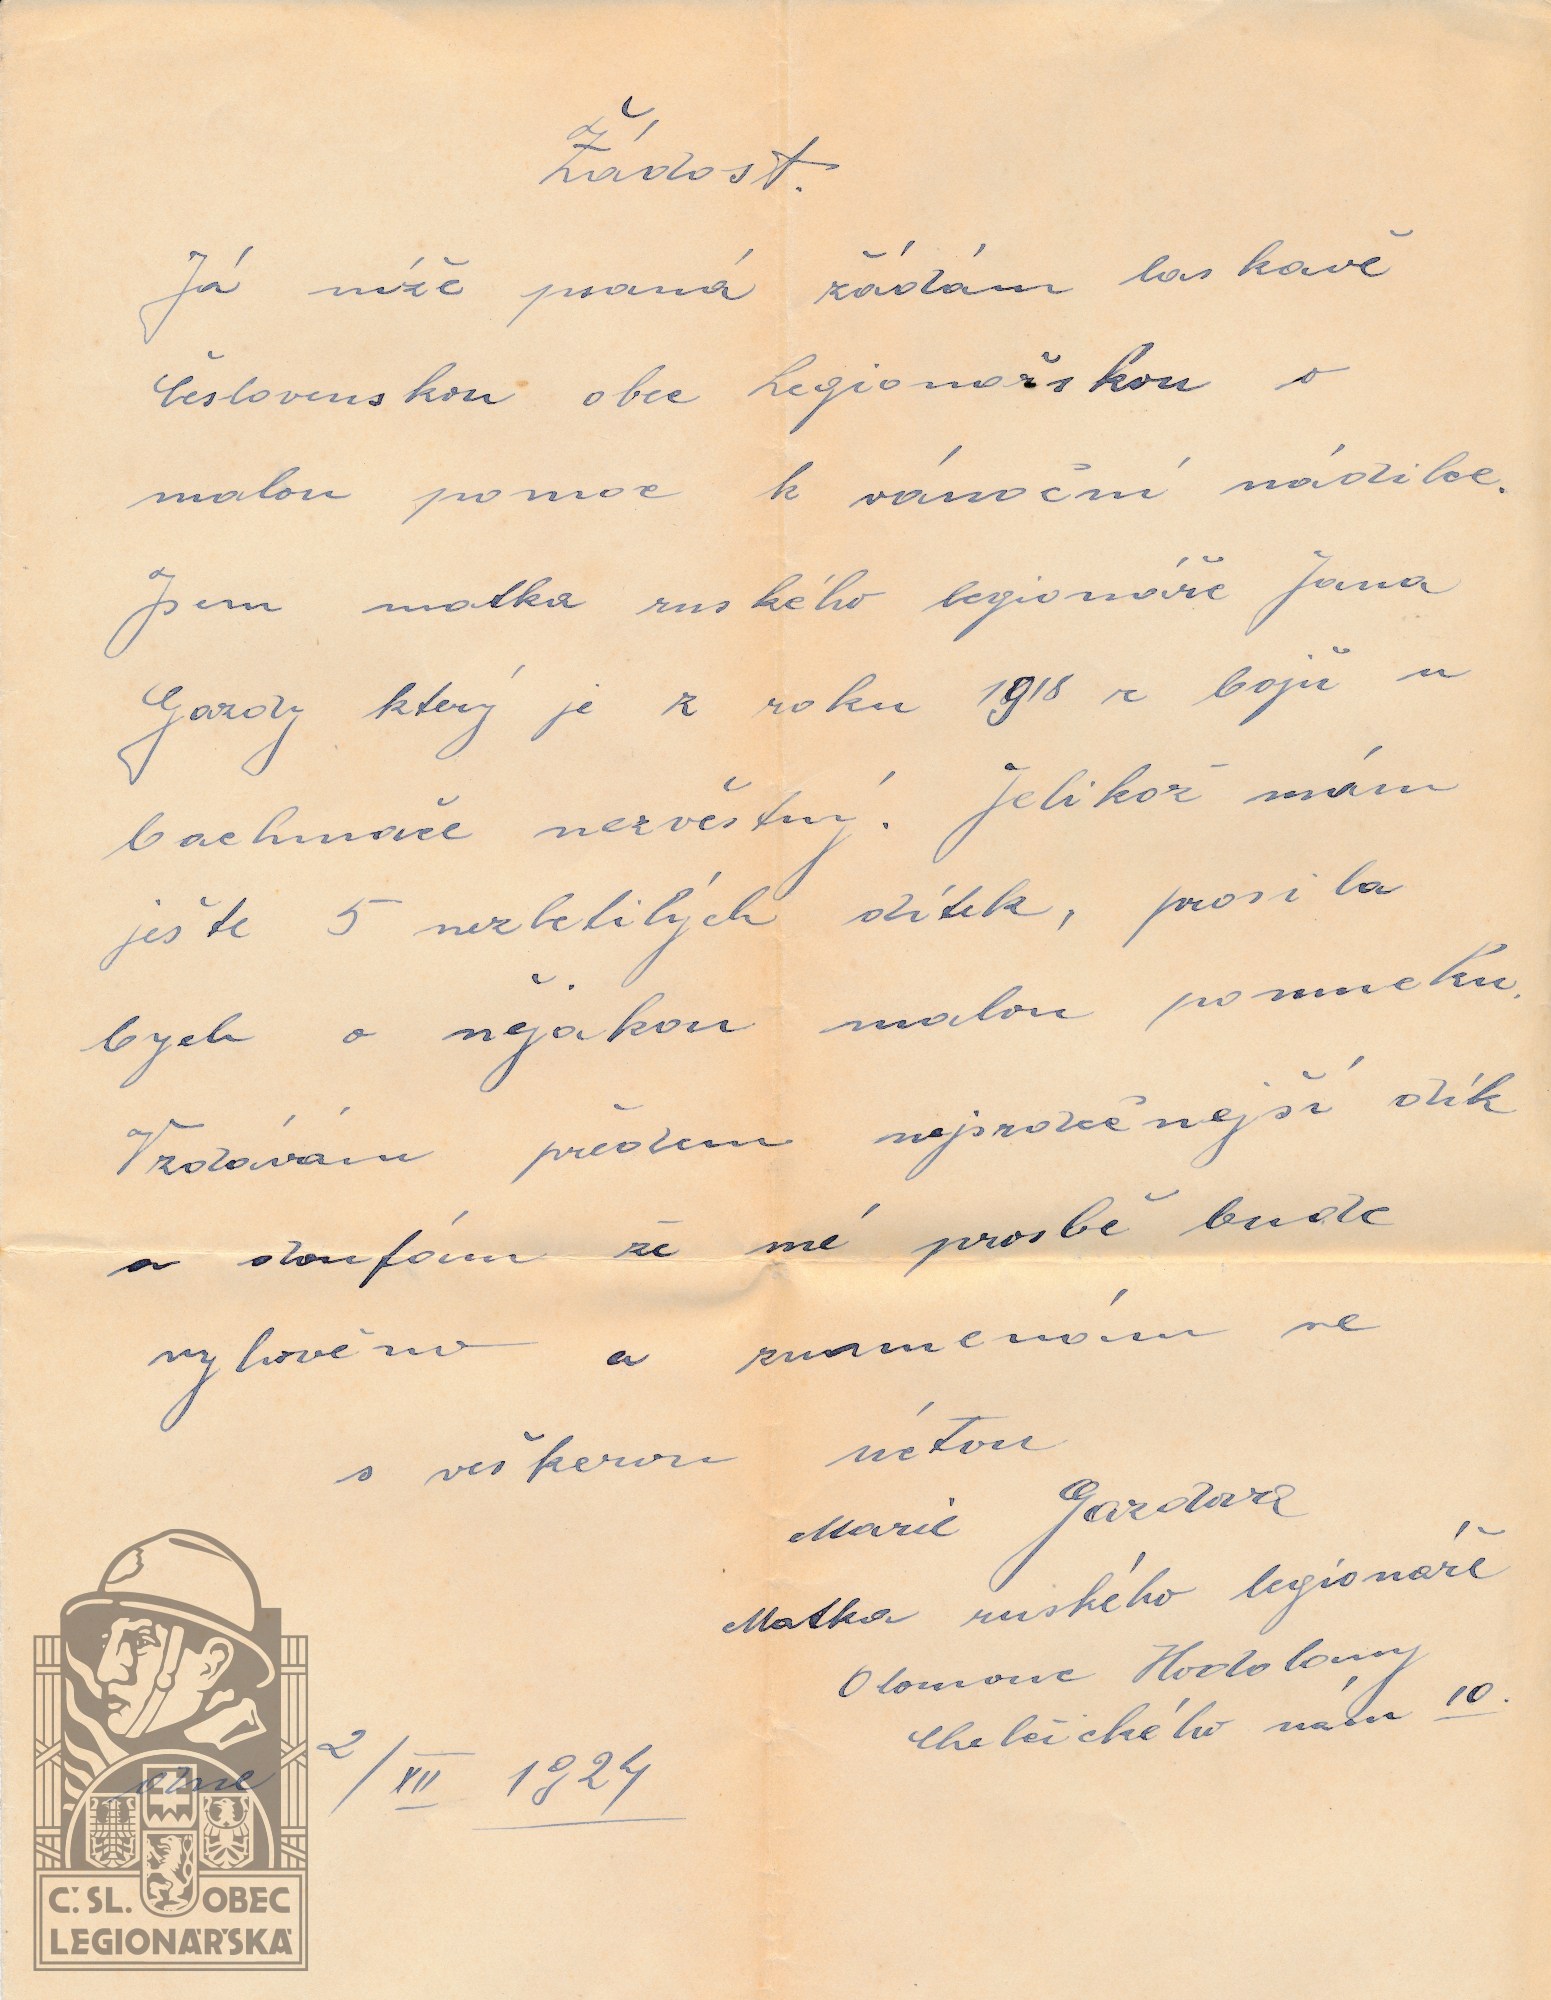 Žádost.
Já níže psaná žádám laskavě
Česlovenskou obec Legionařskou o
malou pomoc k vánoční nádilce.
Jsem matka ruského legionáře Jana
Gazdy který je z roku 1918 z bojů u
bachmače nezvěstný. Jelikož mám
ješte 5 nezletilých dítek, prosila
bych o nějakou malou pomucku.
Vzdávám předem nejsrdečnejší dík
a doufám že mé prosbě bude
vyhověno a znamenám se
s veškerou úctou
Marie Gazdova
Matka ruského legionáře
Olomouc Hodolany
Chelčického nám 10.
dne 2/XII 1924
Č.SL. OBEC
LEGIONÁŘSKÁ